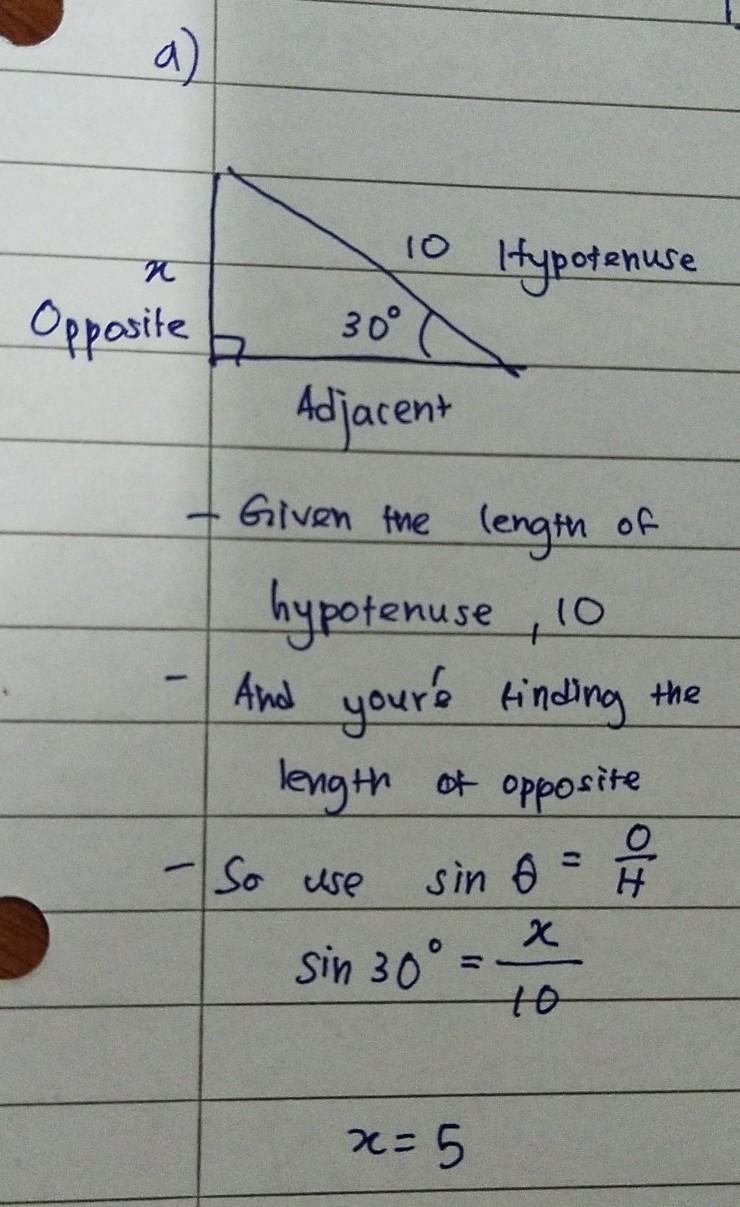 a)
10 Hypotenuse
x
Opposite
30°
Adjacent
- Given the length of
hypotenuse, 10
- And your'e finding the
length of opposite
- So use sin θ = O/H
sin 30° = x/10
x = 5